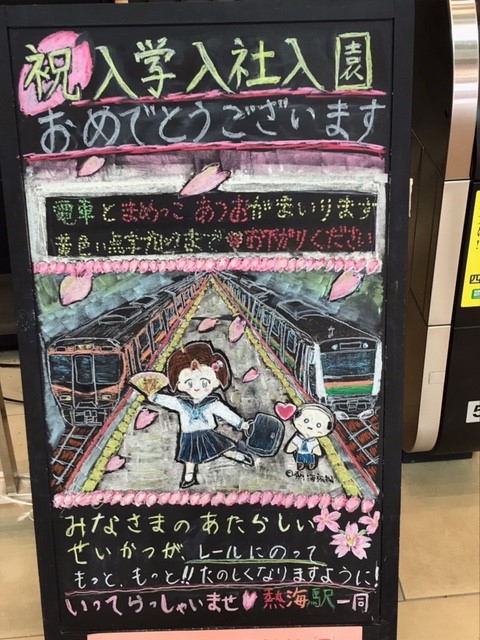 祝入学入社入園
おめでとうございます
電車とまめっこあつおがまいります
黄色い点字ブロックまでお下がりください
みなさまのあたらしい
せいかつが、レールにのって
もっと、もっと!!たのしくなりますように!
いってらっしゃいませ♥熱海駅一同